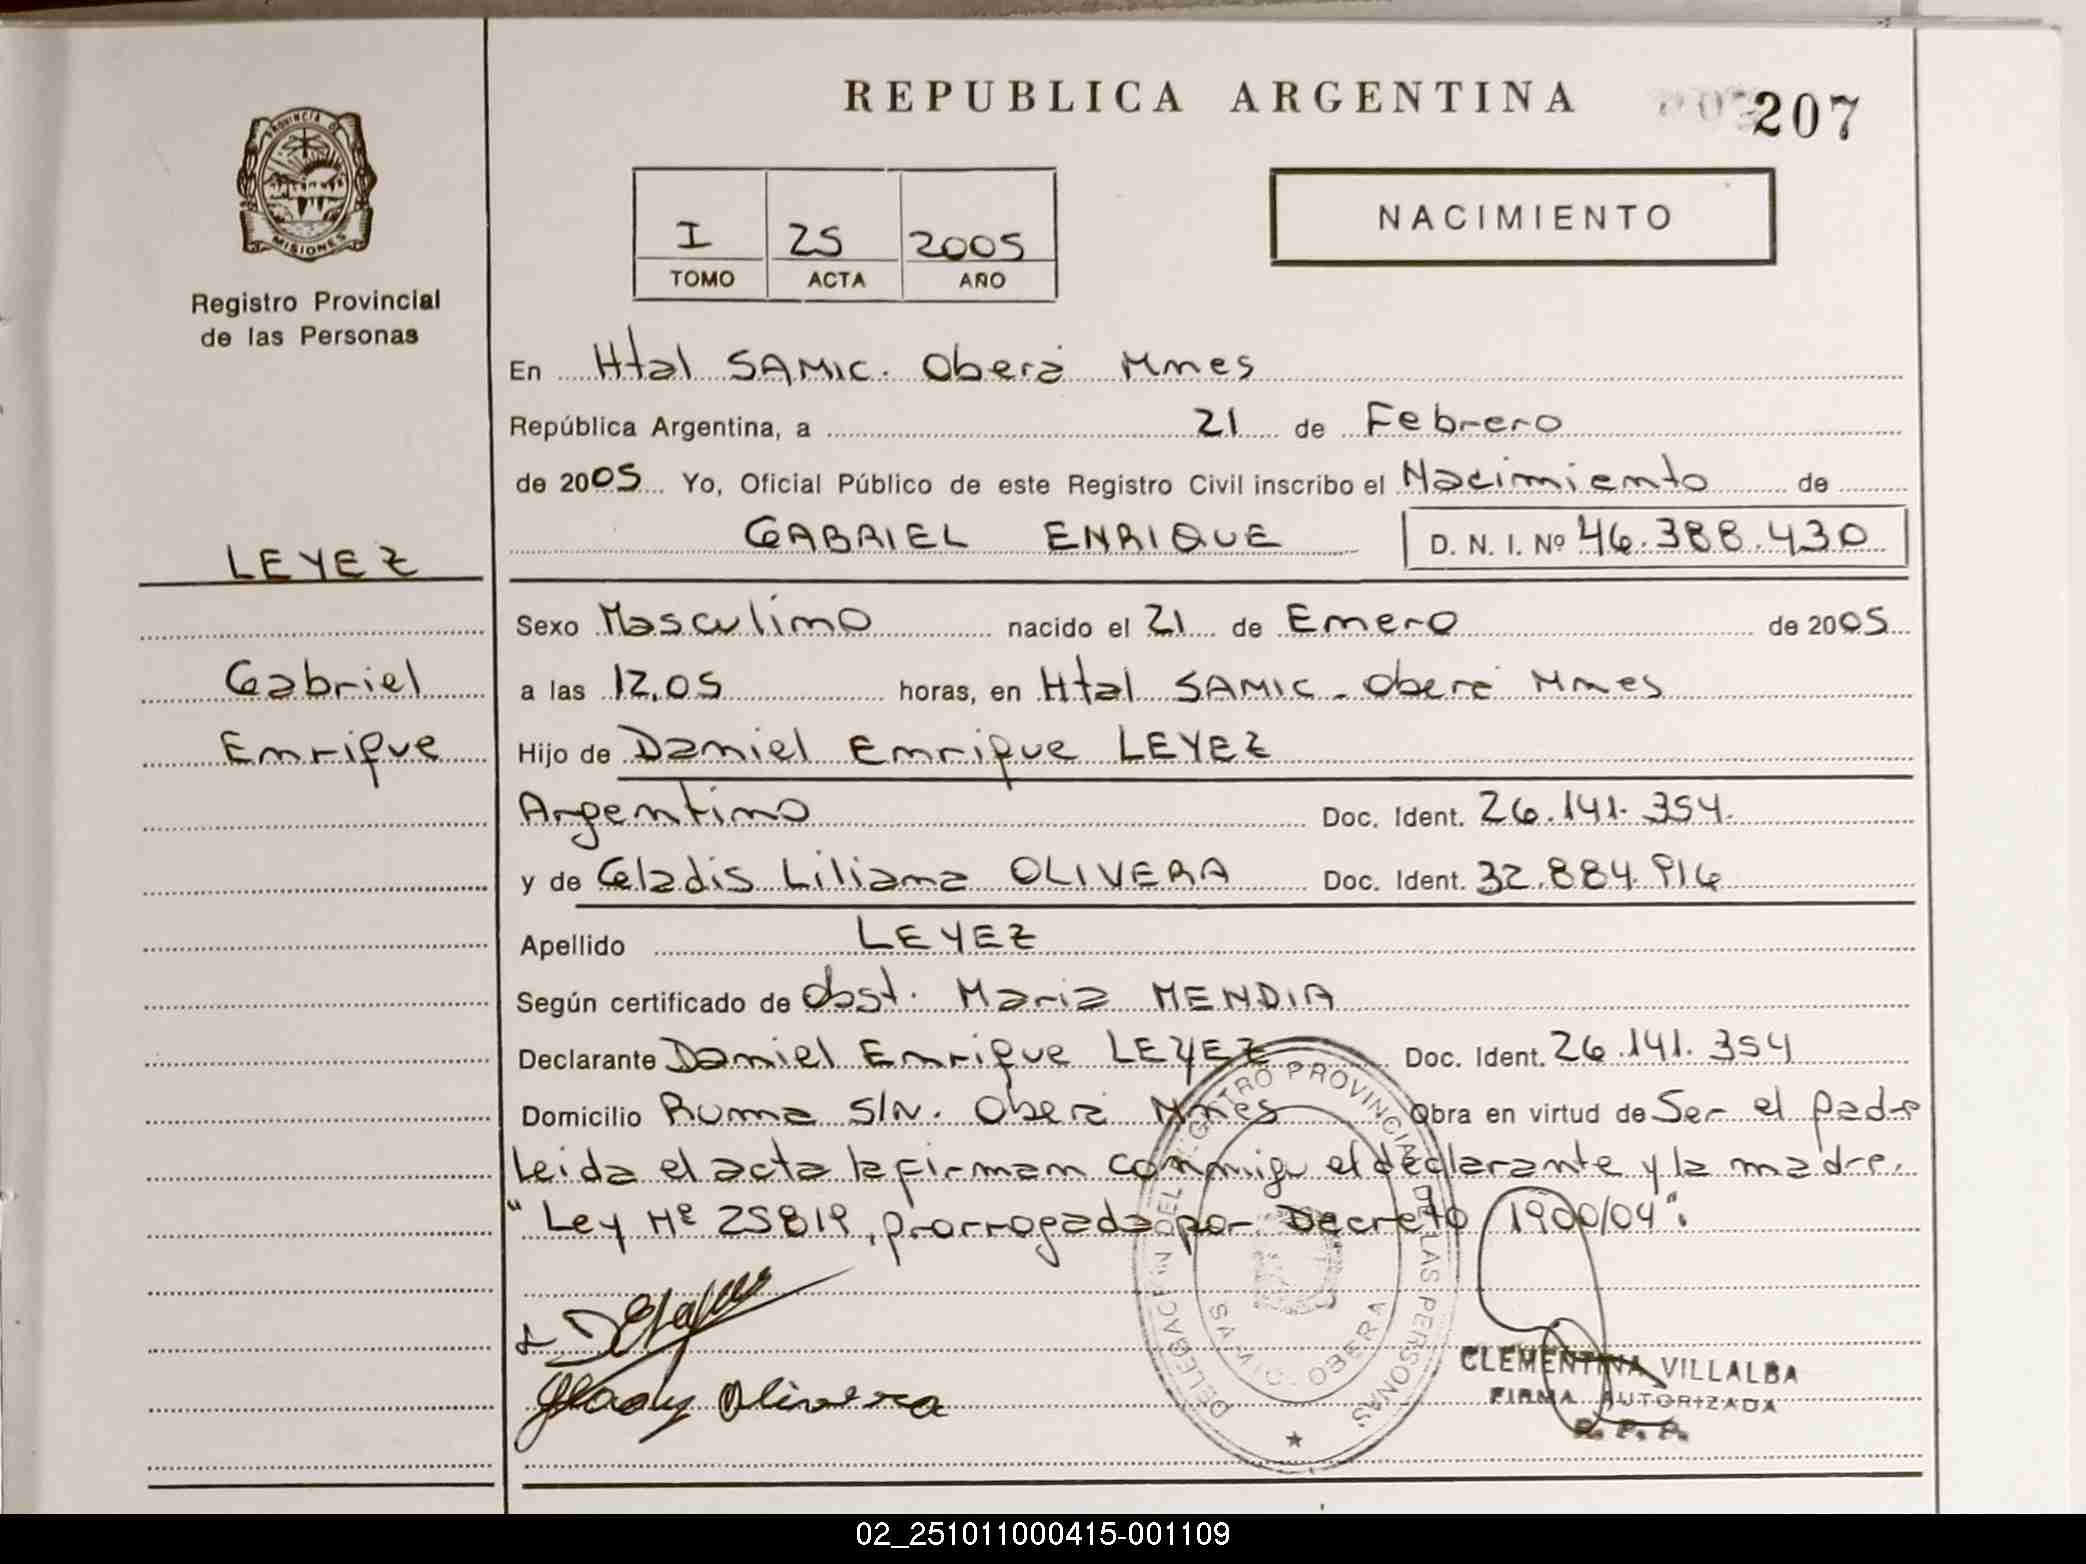 REPUBLICA ARGENTINA
207
PROVINCIA DE
MISIONES
Registro Provincial
de las Personas
NACIMIENTO
I 25 2005
TOMO ACTA AÑO
En Htal SAMIC. Oberá Mnes
República Argentina, a 21 de Febrero
de 2005 Yo, Oficial Público de este Registro Civil inscribo el Nacimiento de
GABRIEL ENRIQUE D. N. I. Nº 46.388.430
LEYEZ
Gabriel
Enrique
Sexo Masculino nacido el 21 de Enero de 2005
a las 12.05 horas, en Htal SAMIC - Oberá Mnes
Hijo de Daniel Enrique LEYEZ
Argentino Doc. Ident. 26.141.354.
y de Gladis Liliana OLIVERA Doc. Ident. 32.884.916
Apellido LEYEZ
Según certificado de Obst. Maria MENDIA
Declarante Daniel Enrique LEYEZ Doc. Ident. 26.141.354
Domicilio Ruma S/N. Oberá Mnes Obra en virtud de Ser el padre
Leida el acta la firman conmigo el declarante y la madre.
"Ley Nº 25819, prorrogada por Decreto 1900/04".
DELEGACIÓN DEL REGISTRO PROVINCIAL DE LAS PERSONAS
SAMIC. OBERA
Olivera
CLEMENTINA VILLALBA
FIRMA AUTORIZADA
R. P. P.
02_251011000415-001109